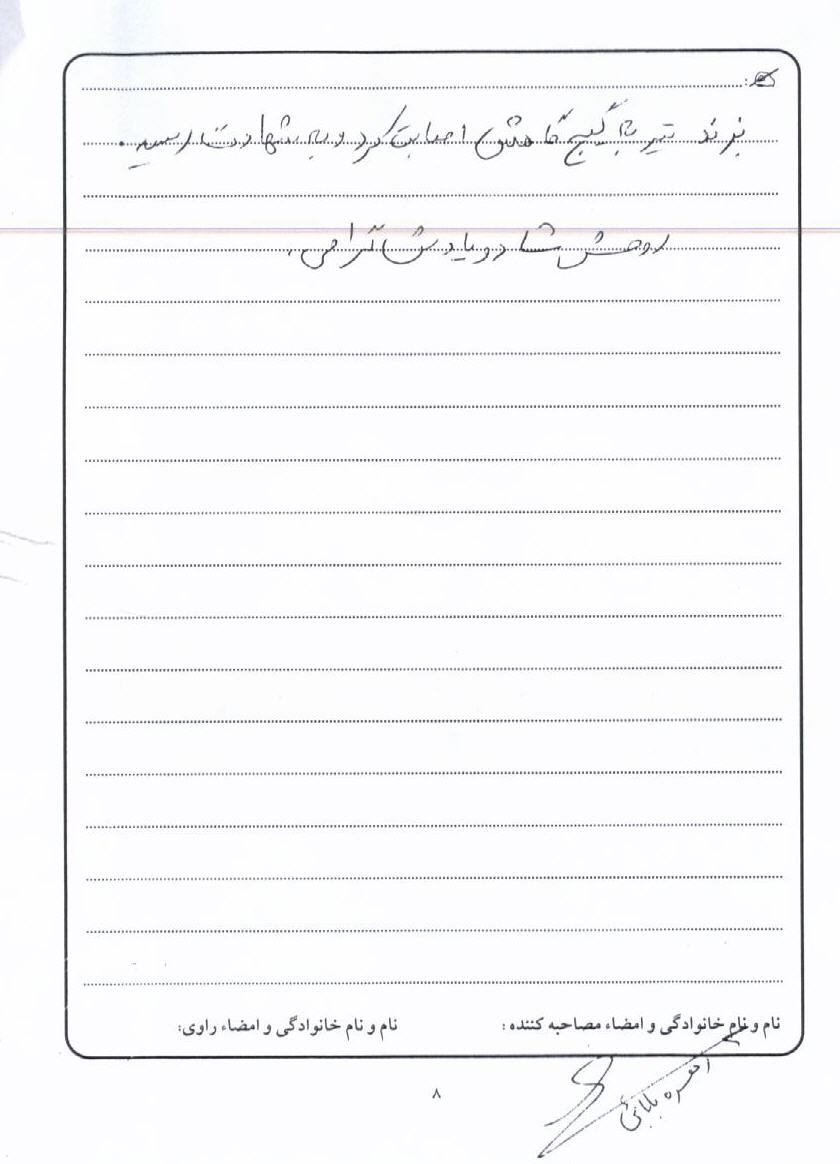 بزند تیر به گیجگاهش اصابت کرد و به شهادت رسید.
روحش شاد و یادش گرامی.
نام و نام خانوادگی و امضاء مصاحبه کننده :
نام و نام خانوادگی و امضاء راوی:
بابائی
۸